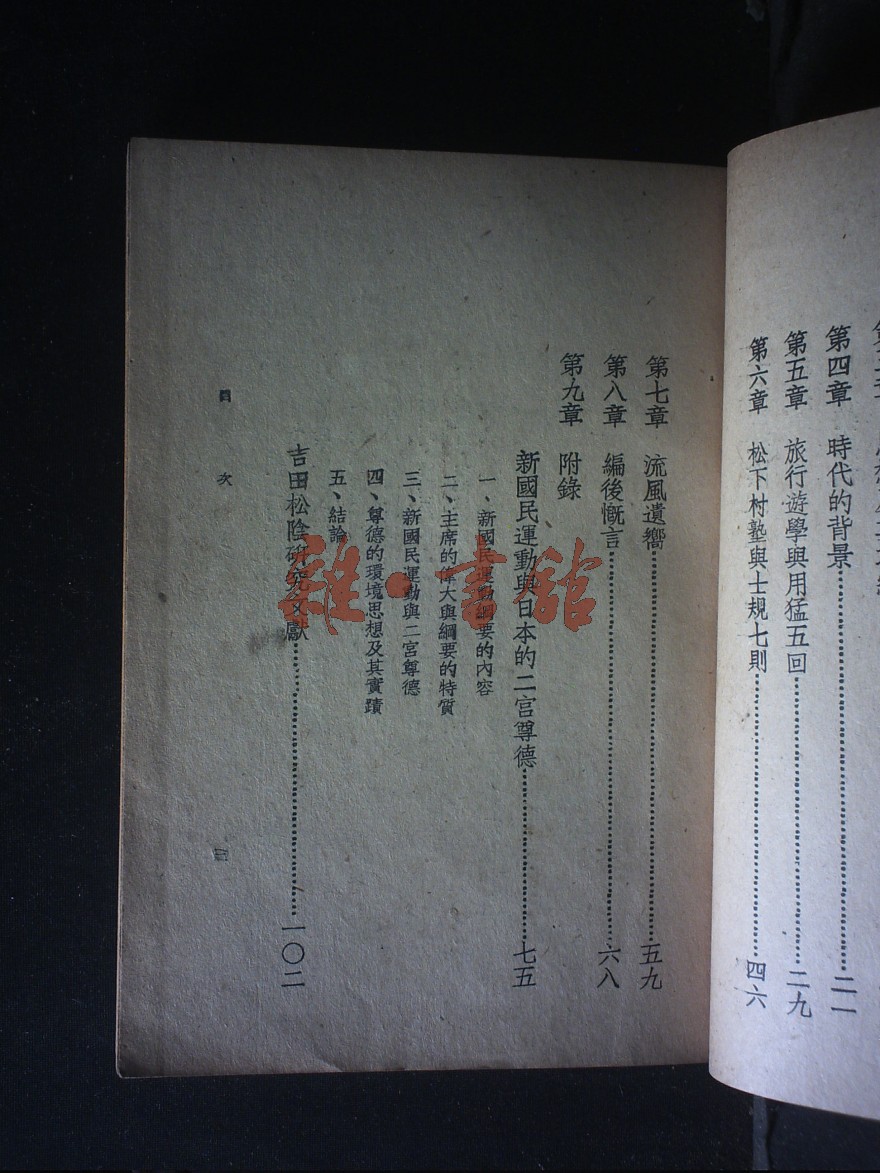 第四章 時代的背景……二一
第五章 旅行遊學與用猛五回……二九
第六章 松下村塾與士規七則……四六
第七章 流風遺嚮……五九
第八章 編後慨言……六八
第九章 附錄
新國民運動與日本的二宮尊德……七五
一、新國民運動綱要的內容
二、主席的偉大與綱要的特質
三、新國民運動與二宮尊德
四、尊德的環境思想及其實蹟
五、結論
吉田松陰研究文獻……一〇二
目次
三
雜·書館